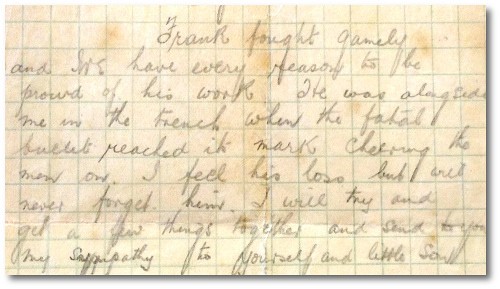 Frank fought gamely
and we have every reason to be
proud of his work. He was alongside
me in the trench when the fatal
bullet reached its mark cheering the
men on. I feel his loss but will
never forget him. I will try and
get a few things together and send to you
my sympathy to yourself and little Son